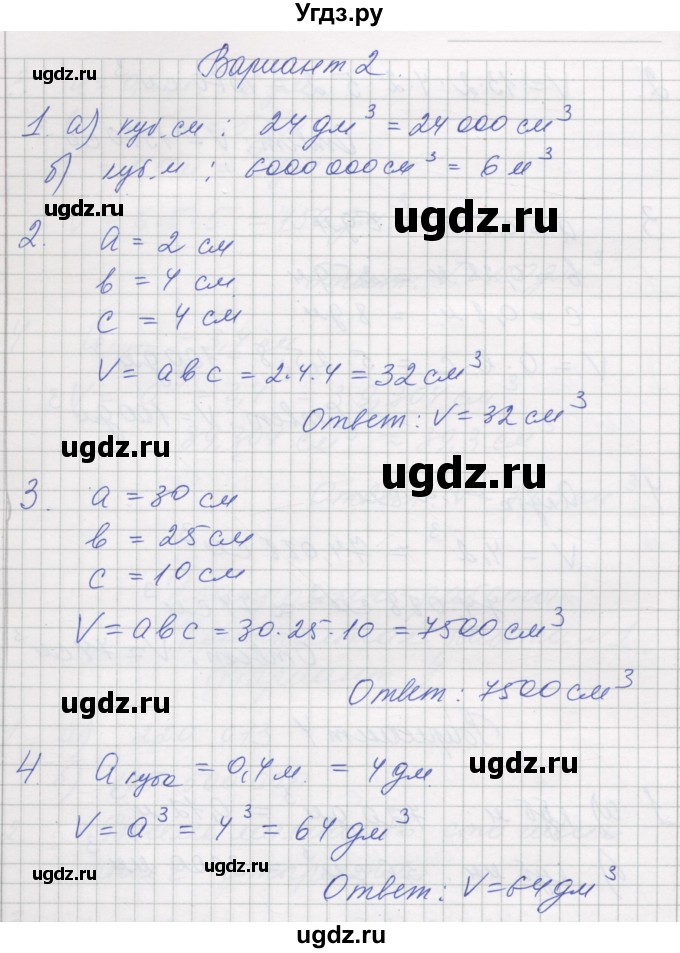 Угдз.ру
ugdz.ru
Вариант 2
1. а) куб.см : 24 дм³ = 24 000 см³
б) куб.м : 6000 000 см³ = 6 м³
ugdz.ru
ugdz.ru
2. a = 2 см
в = 4 см
c = 4 см
V = a в c = 2·4·4 = 32 см³
Ответ: V = 32 см³
ugdz.ru
ugdz.ru
3. a = 30 см
в = 25 см
c = 10 см
V = a в c = 30·25·10 = 7500 см³
Ответ: 7500 см³
ugdz.ru
4 a куба = 0,4 м. = 4 дм
ugdz.ru
V = a³ = 4³ = 64 дм³
ugdz.ru
ugdz.ru
Ответ: V = 64 дм³
ugdz.ru